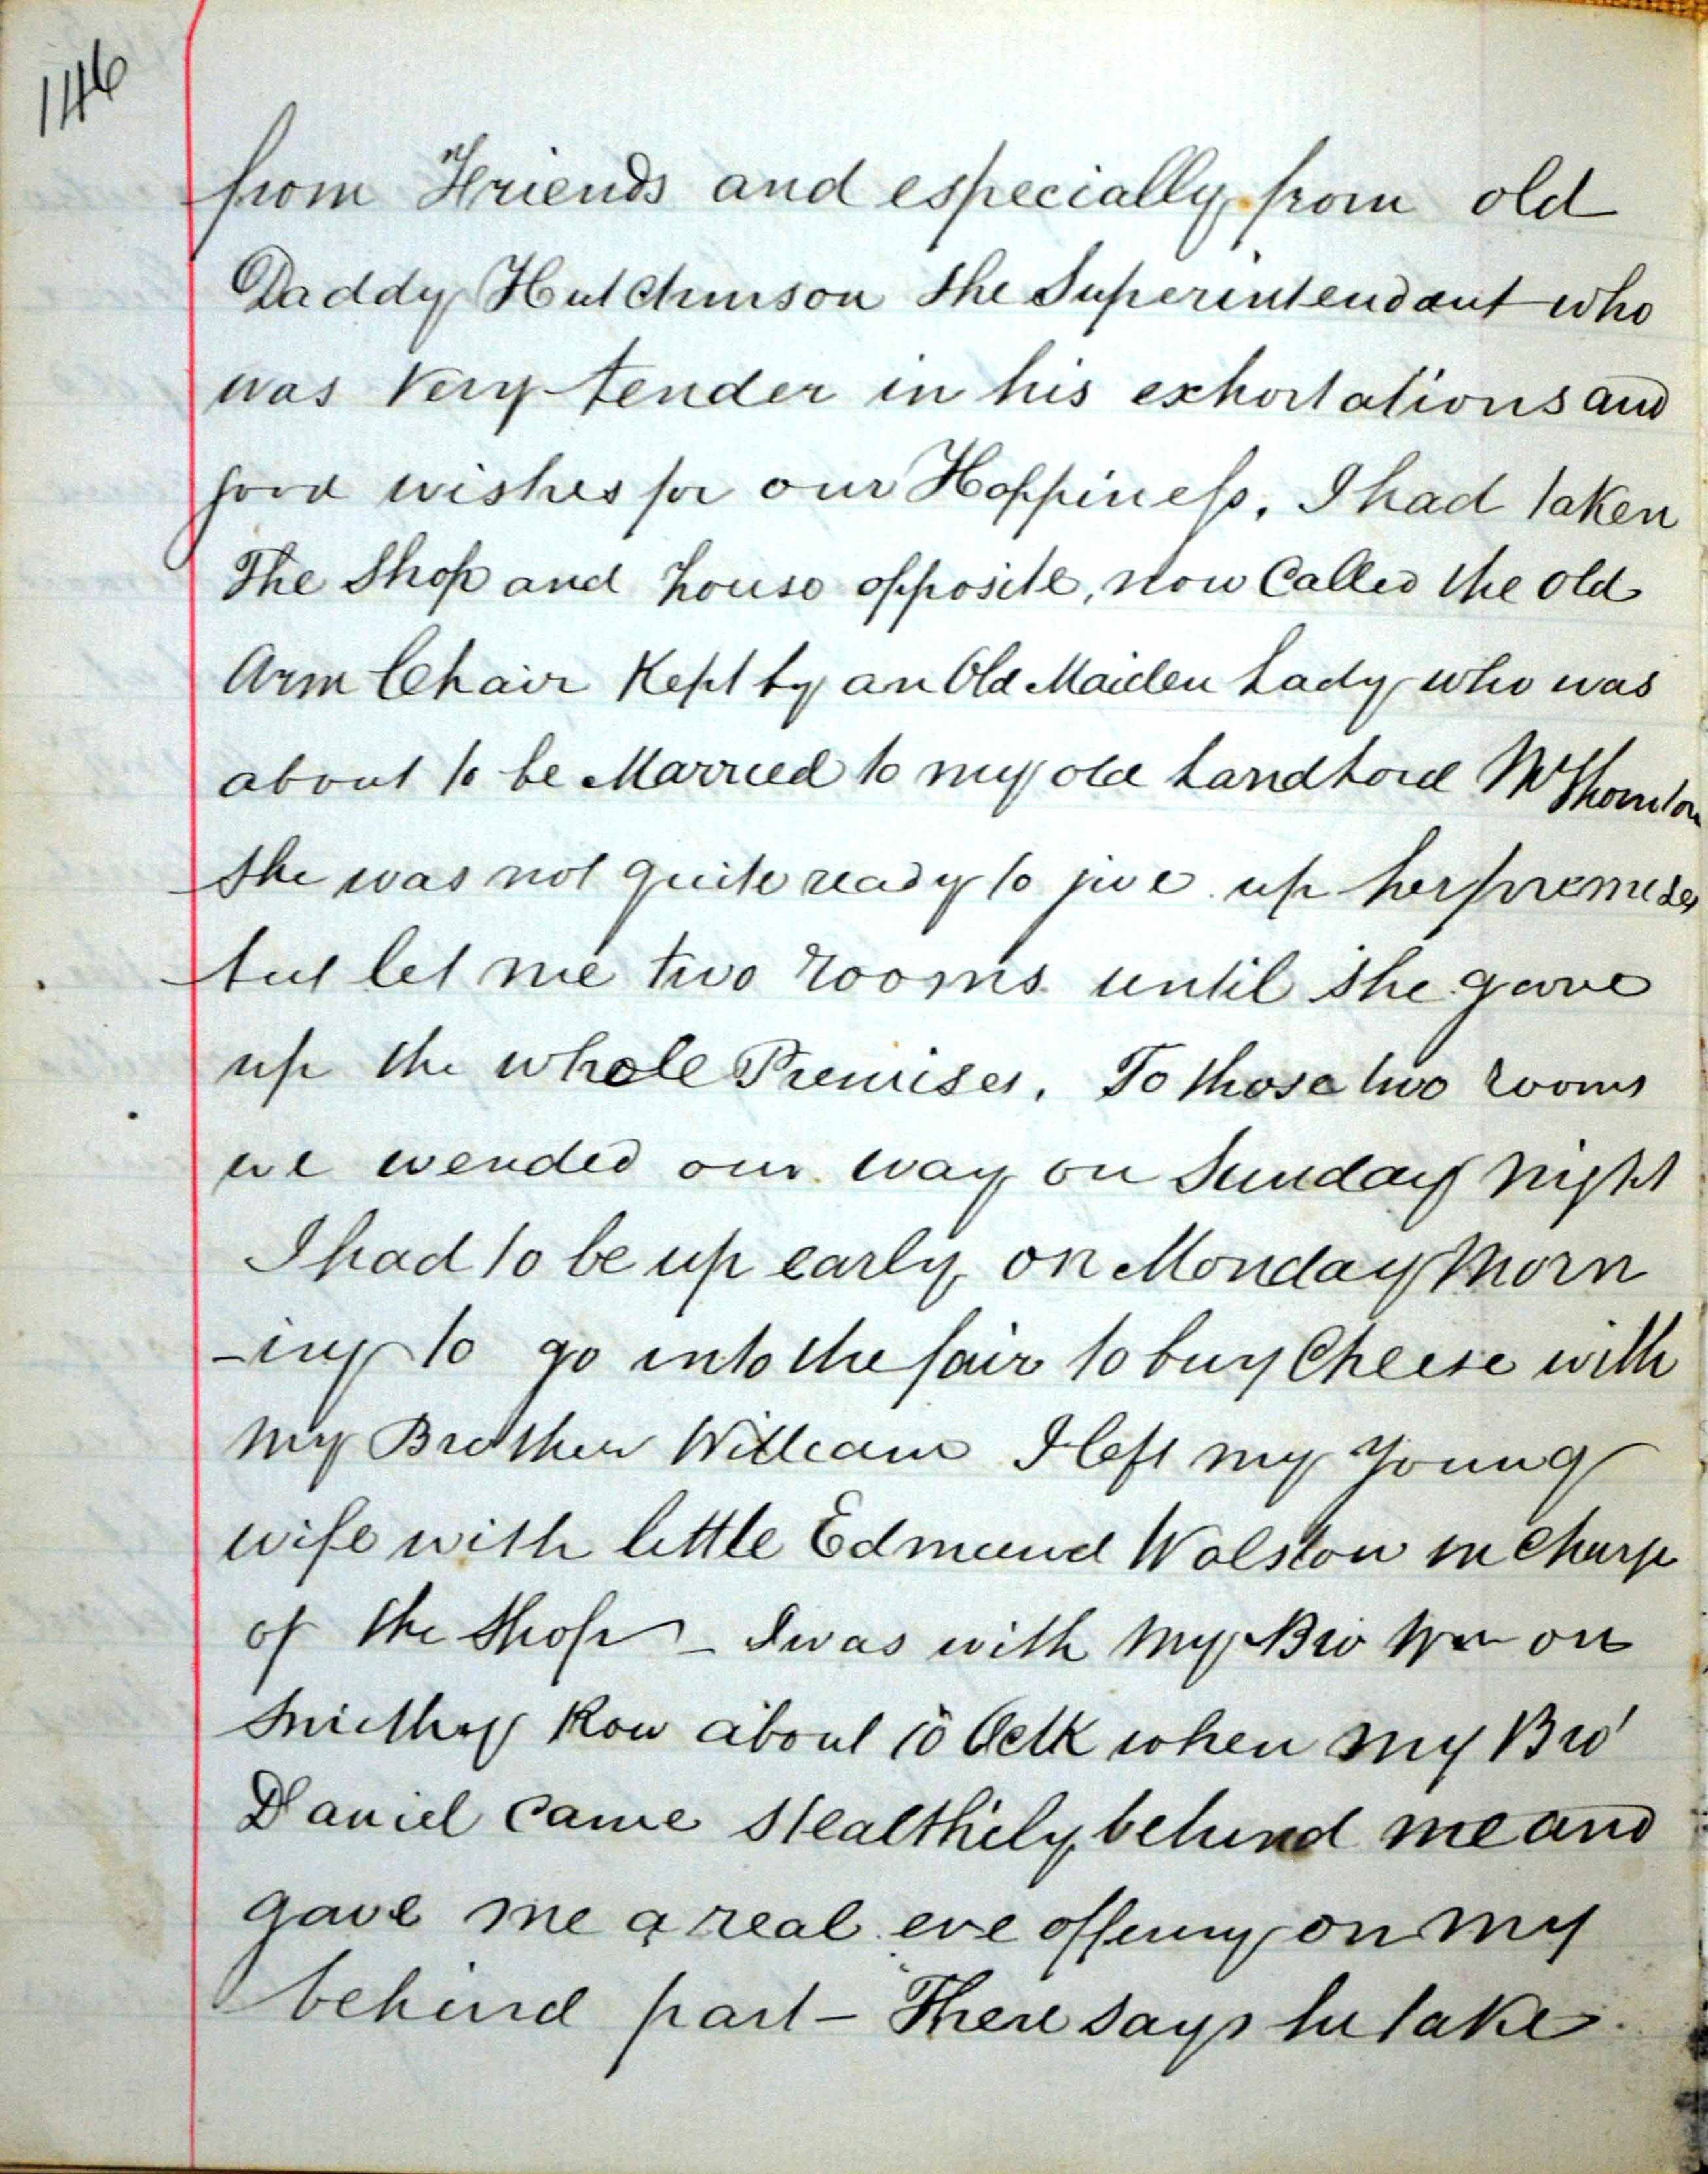 146
from Friends and especially from old
Daddy Hutchinson the Superintendant who
was Very tender in his exhortations and
good wishes for our Happiness. I had taken
The Shop and house opposite, now Called the old
Arm Chair Kept by an Old Maiden Lady who was
about to be Married to my old Landlord Mr Thornton
She was not quite ready to give up her premises
but let me two rooms until she gave
up the whole Premises. To those two rooms
we wended our way on Sunday night
I had to be up early on Monday Morn
-ing to go into the fair to buy Cheese with
my Brother William I left my Young
wife with little Edmund Walston in Charge
of the Shop - I was with my Bro Wm on
Smithy Row about 10 Oclk when my Bro'
Daniel Came Stealthily behind me and
gave me a real eye on my
behind part - There says he take